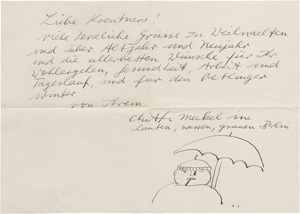 Liebe Kreutners!
viele herzliche Grüsse zu Weihnachten
und über Altjahr und Neujahr
und die allerbesten Wünsche für Ihr
Wohlergehen, Gesundheit, Arbeit und
Tageslauf, und für den
Winter
von Ihrem
Meckel im
lauten, nassen, grauen